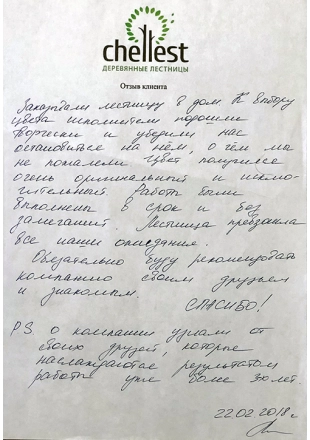 chellest
ДЕРЕВЯННЫЕ ЛЕСТНИЦЫ
Отзыв клиента
Заказывали лестницу в дом. К выбору
цвета исполнители подошли
творчески и убедили нас
остановиться на нём, о чём мы
не пожалели. Цвет получился
очень оригинальный и исклю-
чительный. Работы были
выполнены в срок и без
замечаний. Лестница превзошла
все наши ожидания.
Обязательно буду рекомендовать
компанию своим друзьям
и знакомым.
СПАСИБО!
P.S. о компании узнали от
своих друзей, которые
наслаждаются результатом
работы уже более 3х лет.
22.02.2018 г.